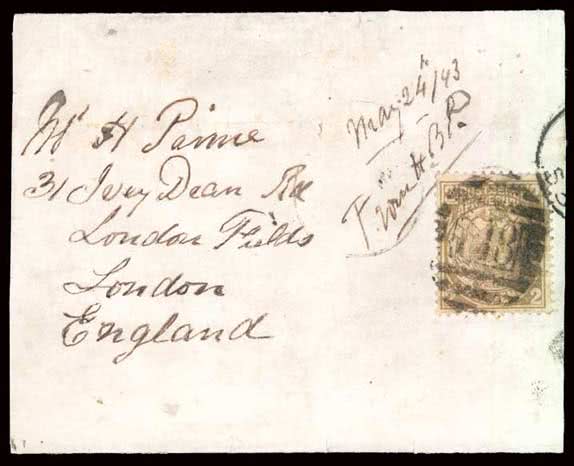 Mr H Paine
31 Ivey Dean Rd
London Fields
London
England
May 24th/93
From H.B.P.
18
2